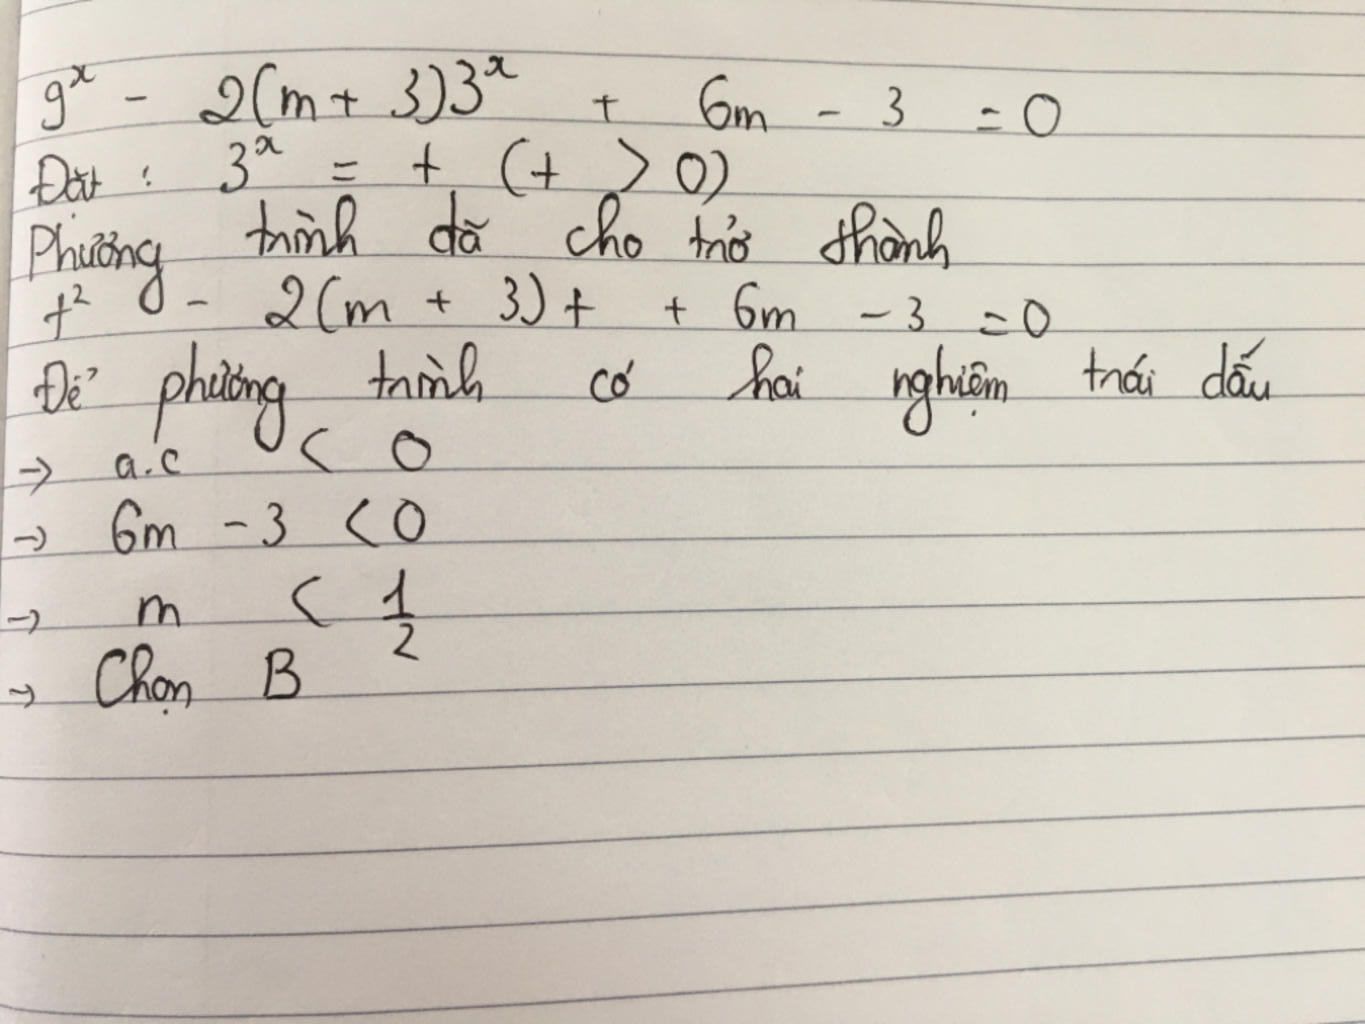 9ˣ - 2(m + 3)3ˣ + 6m - 3 = 0
Đặt : 3ˣ = t (t > 0)
Phương trình đã cho trở thành
t² - 2(m + 3)t + 6m - 3 = 0
Để phương trình có hai nghiệm trái dấu
→ a.c < 0
→ 6m - 3 < 0
→ m < 1/2
→ Chọn B